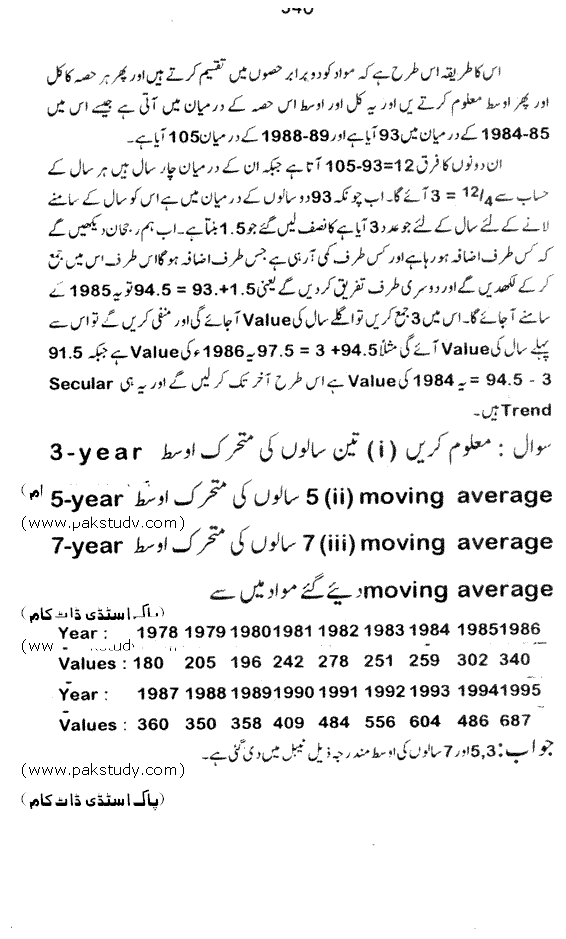 340
اس کا طریقہ اس طرح ہے کہ مواد کو دو برابر حصوں میں تقسیم کرتے ہیں اور پھر ہر حصہ کا کل
اور پھر اوسط معلوم کرتے یں اور یہ کل اور اوسط اس حصہ کے درمیان میں آتی ہے جیسے اس میں
1984-85 کے درمیان میں 93 آیا ہے اور 89-1988 کے درمیان 105 آیا ہے۔
ان دونوں کا فرق 12=93-105 آتا ہے جبکہ ان کے درمیان چار سال ہیں ہر سال کے
حساب سے 12/4 = 3 آئے گا۔ اب چونکہ 93 دو سالوں کے درمیان میں ہے اس کو سال کے سامنے
لانے کے لئے سال کے لئے جو عدد 3 آیا ہے کا نصف لیں گئے جو 1.5 بنتا ہے۔ اب ہم رجحان دیکھیں گے
کہ کس طرف اضافہ ہو رہا ہے اور کس طرف کمی آ رہی ہے جس طرف اضافہ ہو گا اس طرف اس میں جمع
کر کے لکھ دیں گے اور دوسری طرف تفریق کر دیں گے یعنی 94.5 = 93.+1.5 تو یہ 1985 کے
سامنے آ جائے گا۔ اس میں 3 جمع کریں تو اگلے سال کی Value آ جائے گی اور منفی کریں گے تو اس سے
پہلے سال کی Value آئے گی مثلاً 97.5 = 3 +94.5 یہ 1986ء کی Value ہے جبکہ 91.5
= 94.5 - 3 یہ 1984 کی Value ہے اس طرح آخر تک کر لیں گے اور یہ ہی Secular
Trend ہیں۔
سوال : معلوم کریں (i) تین سالوں کی متحرک اوسط 3-year
moving average (ii) 5 سالوں کی متحرک اوسط 5-year
(www.pakstudy.com)
moving average (iii) 7 سالوں کی متحرک اوسط 7-year
moving average دیئے گئے مواد میں سے
(پاک اسٹڈی ڈاٹ کام)
Year : 1978 1979 1980 1981 1982 1983 1984 1985 1986
Values : 180 205 196 242 278 251 259 302 340
Year : 1987 1988 1989 1990 1991 1992 1993 1994 1995
Values : 360 350 358 409 484 556 604 486 687
جواب : 5,3 اور 7 سالوں کی اوسط مندرجہ ذیل ٹیبل میں دی گئی ہے۔
(www.pakstudy.com)
(پاک اسٹڈی ڈاٹ کام)